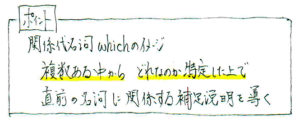 ポイント
関係代名詞 whichのイメージ
複数ある中から どれなのか特定した上で
直前の名詞に関係する補足説明を導く